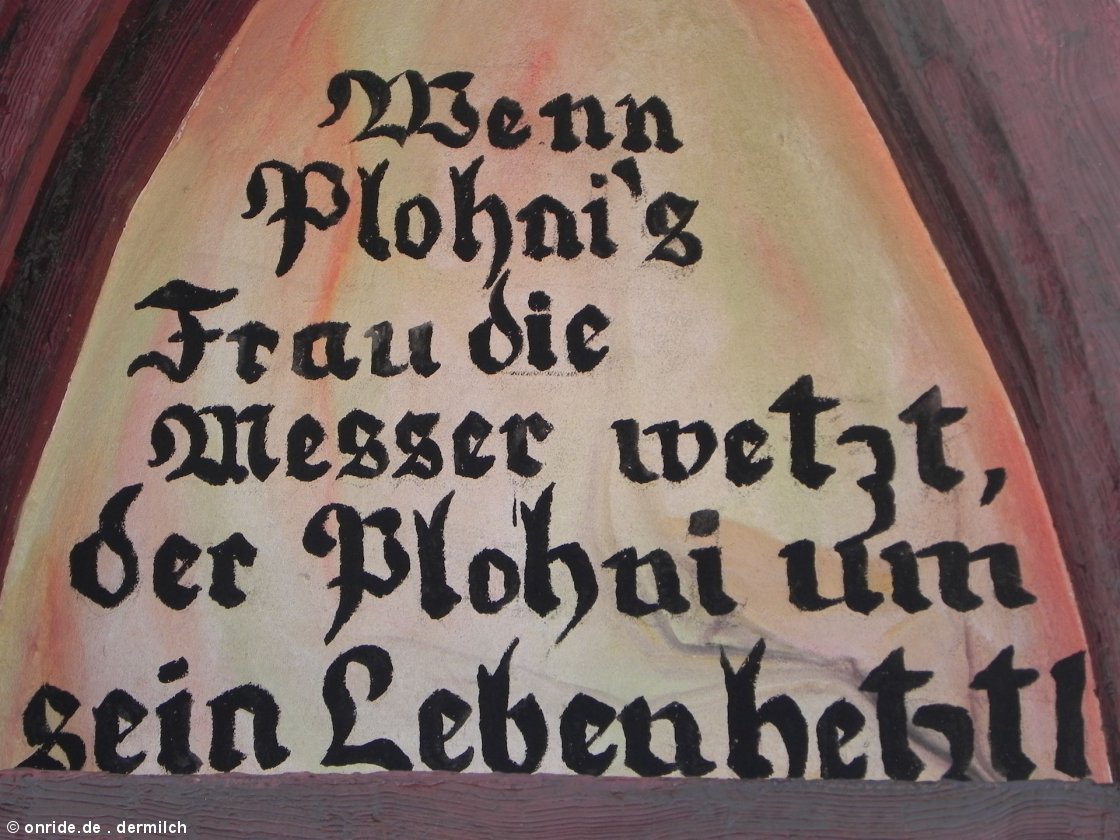 Wenn
Plohni's
Frau die
Messer wetzt,
der Plohni um
sein Leben hetzt!
© onride.de . dermilch